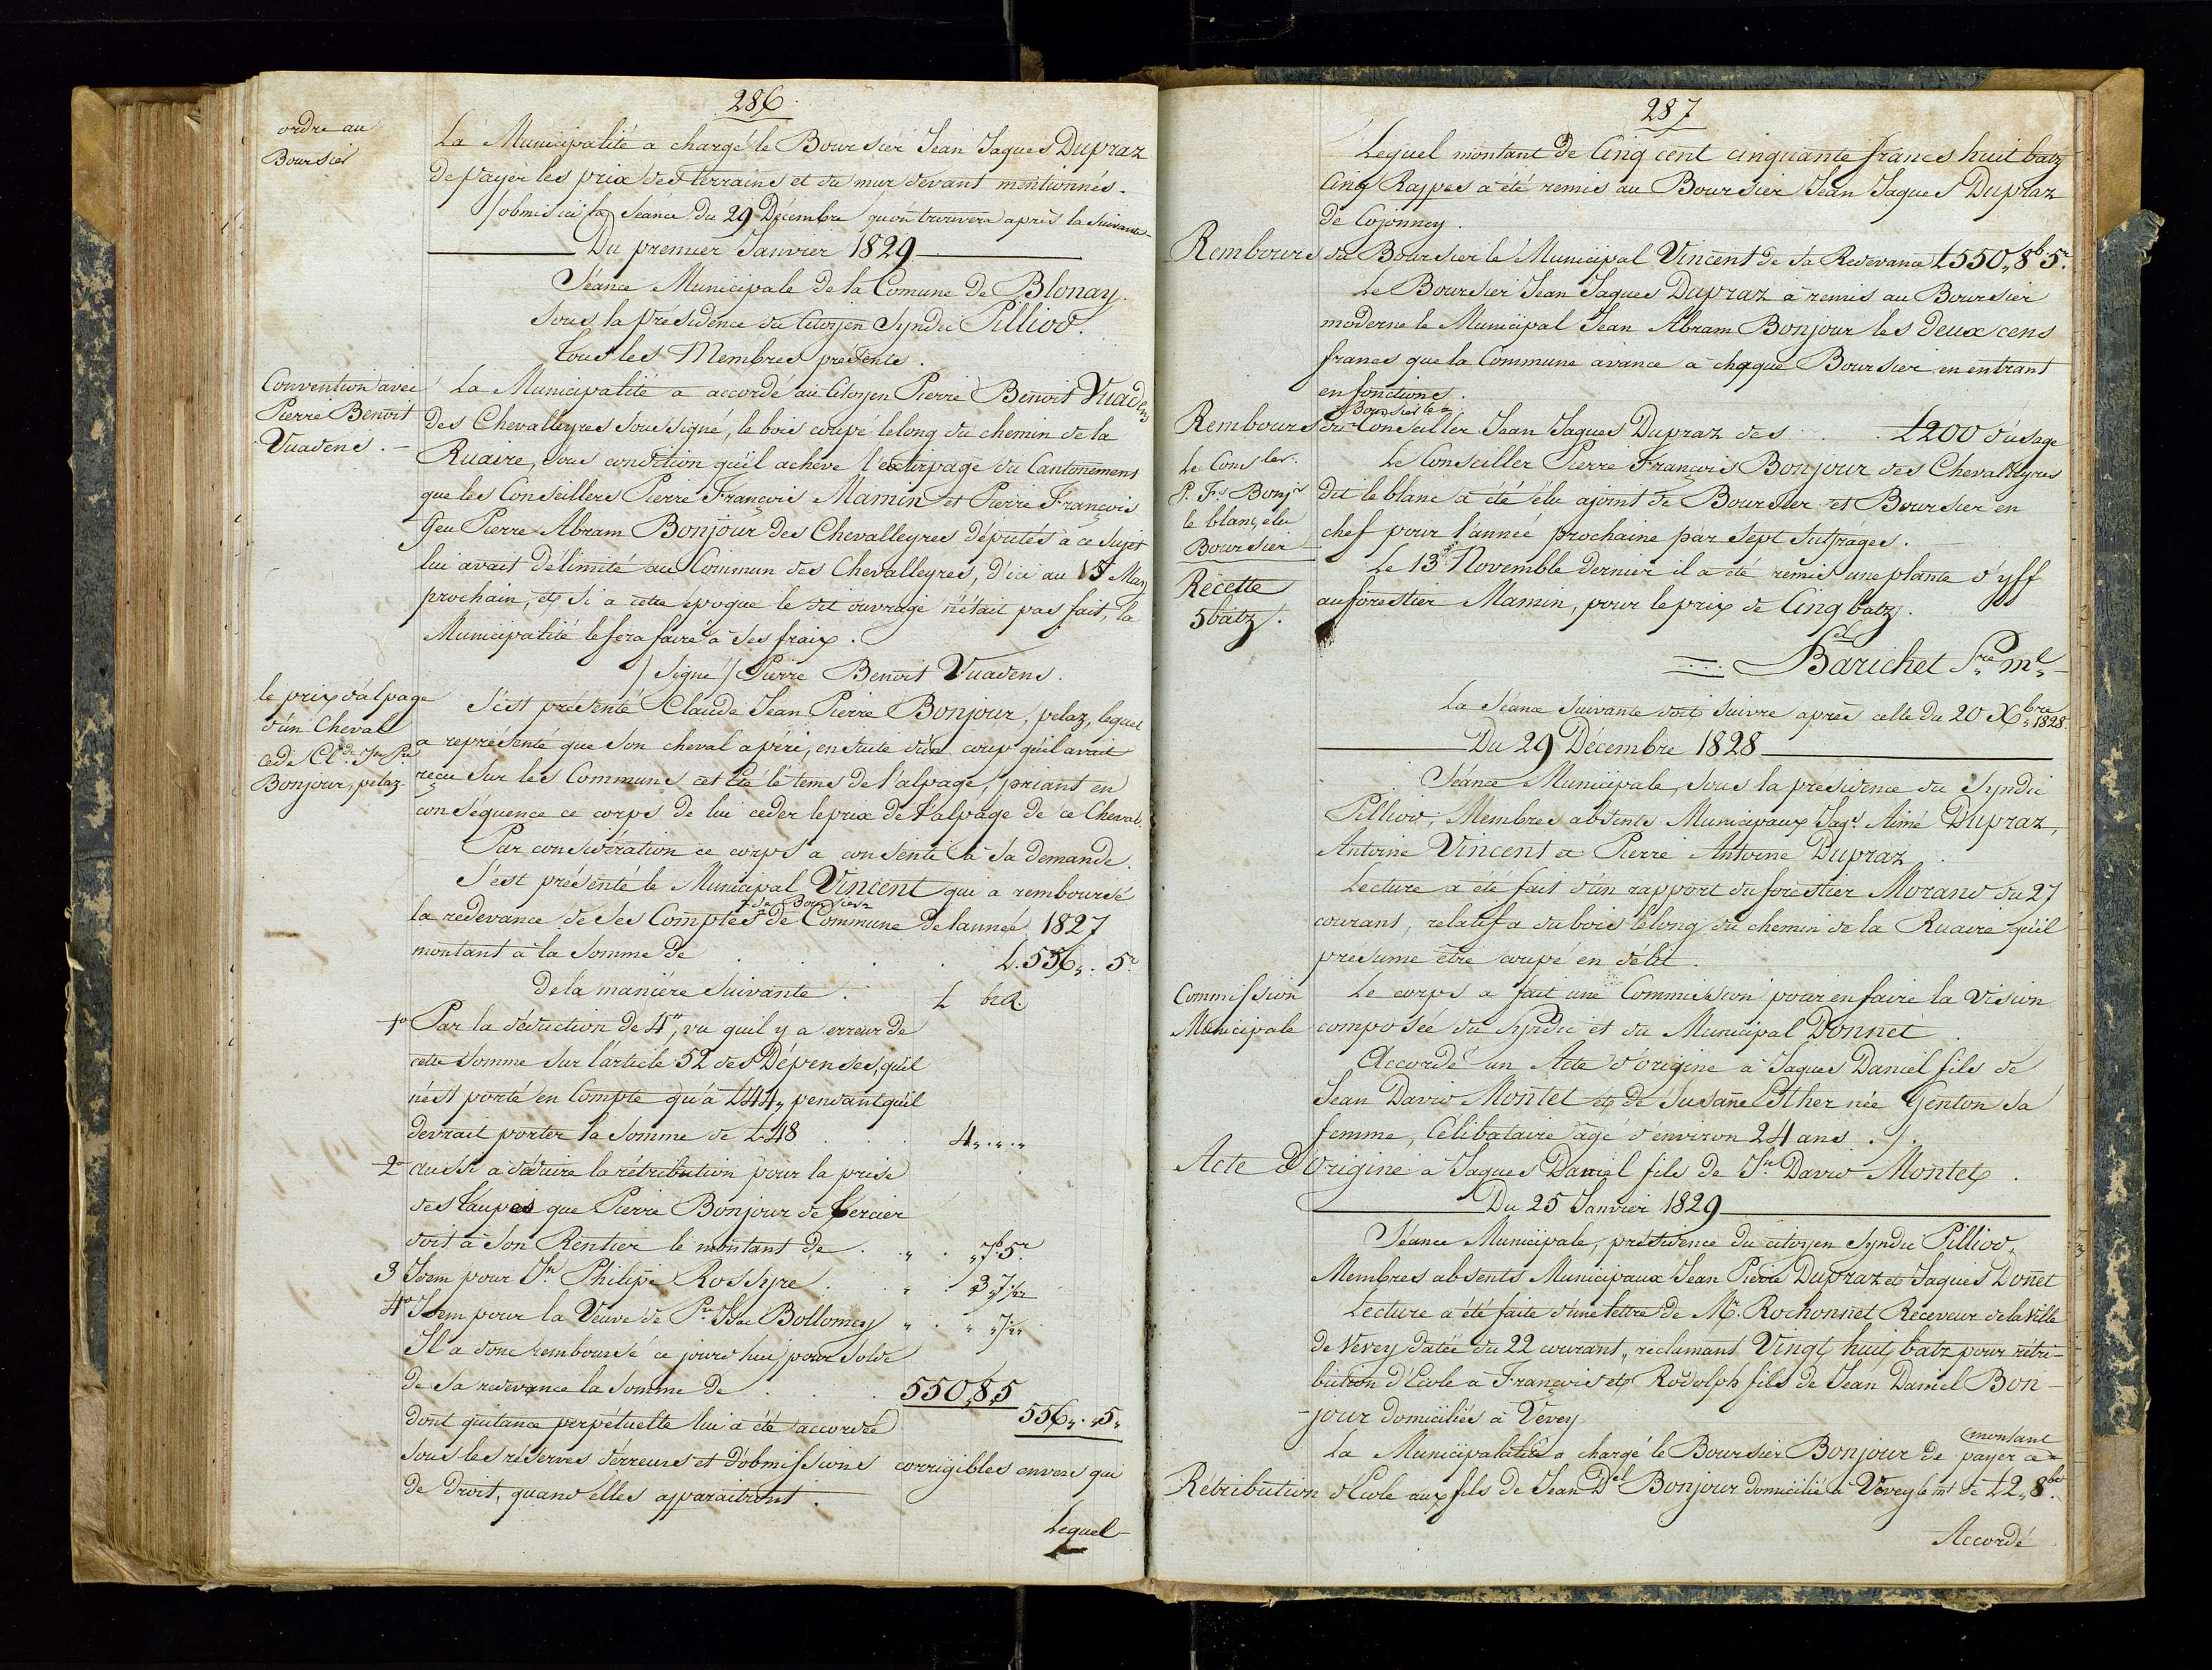 286
ordre au
Boursier
La Municipalité a chargé le Boursier Jean Jaques Dupraz
de payer les prix des terrains et du mur devant mentionnés.
/obmis ici la Séance du 29 Décembre qu'on trouvera après la suivante
Du premier Janvier 1829
Séance Municipale de la Comune de Blonay.
sous la présidence du Citoyen Syndic Pilliod.
tous les Membres presents.
Convention avec
Pierre Benoit
Vuadens.
La Municipalité a accordé au Citoyen Pierre Benoit Vuadens
des Chevalleyres soussigné, le bois coupé le long du chemin de la
Ruaire, sous condition qu'il achève l'extirpage du Cantonnement
que les Conseillers Pierre François Mamin et Pierre François
feu Pierre Abram Bonjour des Chevalleyres députés à ce sujet
lui avait délimité au Commun des Chevalleyres, d'ici au 15 May
prochain, et si a cette époque le dit ouvrage n'était pas fait, la
Municipalité le fera faire à ses fraix.
/Signé/ Pierre Benoit Vuadens.
le prix d'alpage
d'un Cheval
cedé Cl.de Jn Pre
Bonjour, pelaz
S'est présenté Claude Jean Pierre Bonjour, pelaz, lequel
a représenté que son cheval a péri, en suite d'un coup qu'il avait
reçu sur les Communs cet Eté le tems de l'alpage, priant en
conséquence ce corps de lui ceder le prix de l'alpage de ce Cheval.
Par considération ce corps a consenti à sa demande.
S'est présenté le Municipal Vincent qui a remboursé
de Boursier
la redevance de ses Comptes de Commune de l'année 1827
montant à la somme de . . . L. 556,, . 5r
de la manière suivante. L bz R.
1o Par la déduction de 4", vu qu'il y a erreur de
cette somme sur l'article 52 des Dépenses, qu'il
n'est porté en Compte qu'à L44,, pendant qu'il
devrait porter la somme de L48 . . . 4,, . ,, . ,,
2o aussi à déduire la rétribution pour la prise
des taupes que Pierre Bonjour de Tercier
doit à son Rentier le montant de . ,, . ,, 7b 5r
3 Idem pour Jn Philipe Rossyre . . ,, . 3,, 7½
4o Idem pour la Veuve de Pre Isac Bollomey ,, . ,, 7½
Il a donc remboursé ce jourd'hui pour solde
de sa redevance la somme de . . . 550,,8,,5
556,, . ,,5,,
dont quitance perpétuelle lui a été accordée
sous les réserves d'erreurs et d'obmissions corrigibles envers qui
de droit, quand elles apparaitront.
Lequel
287
Lequel montant de Cinq cent cinquante francs huit batz
Cinq Rappes a été remis au Boursier Jean Jaques Dupraz
de Cojonney.
Rembours du Boursier le Municipal Vincent de sa Redevance L550,,8b 5r.
Le Boursier Jean Jaques Dupraz a remis au Boursier
moderne le Municipal Jean Abram Bonjour les deux cens
francs que la Commune avance a chaque Boursier en entrant
en fonctions.
Boursier le
Rembours du Conseiller Jean Jaques Dupraz des . . L200 d'usage
Le Consler.
P. Fs Bonjr
le blanc, élu
Boursier
Le Conseiller Pierre François Bonjour des Chevalleyres
dit le blanc a été élu ajoint de Boursier et Boursier en
chef pour l'année prochaine par sept sufrages.
Recette
5 batz.
Le 13 Novembre dernier il a été remis une plante d'yff
au forestier Mamin, pour le prix de Cinq batz.
Barichet Sre ml
La Séance suivante doit suivre après celle du 20 Xbre 1828.
Du 29 Décembre 1828
Séance Municipale, sous la presidence du Syndic
Pilliod, Membres absents Municipaux Jaqs Aimé Dupraz,
Antoine Vincent et Pierre Antoine Dupraz.
Lecture a été fait d'un rapport du forestier Morand du 27
courant, relatif a du bois le long du chemin de la Ruaire qu'il
présume être coupé en délit.
Commission
Municipale
Le corps a fait une Commission pour en faire la Vision
composée du Syndic et du Municipal Donnet.
Accordé un Acte d'origine à Jaques Daniel fils de
Jean David Montet et de Susane Esther née Genton sa
femme, Célibataire âgé d'environ 24 ans. /.
Acte d'Origine a Jaques Daniel fils de Jn David Montet.
Du 25 Janvier 1829
Séance Municipale, présidence du citoyen Syndic Pilliod,
Membres absents Municipaux Jean Pierre Dupraz et Jaques Donet
Lecture a été faite d'une lettre de Mr. Rochonnet Receveur de la Ville
de Vevey datée du 22 courant, réclamant Vingt huit batz pour rétri-
bution d'Ecole a François et Rodolph fils de Jean Daniel Bon-
-jour domiciliés à Vevey
montant
La Municipalité a chargé le Boursier Bonjour de payer ce
Rétribution d'Ecole aux fils de Jean Del Bonjour domicilié à Vevey le mt de L2,,8bz.
Accordé